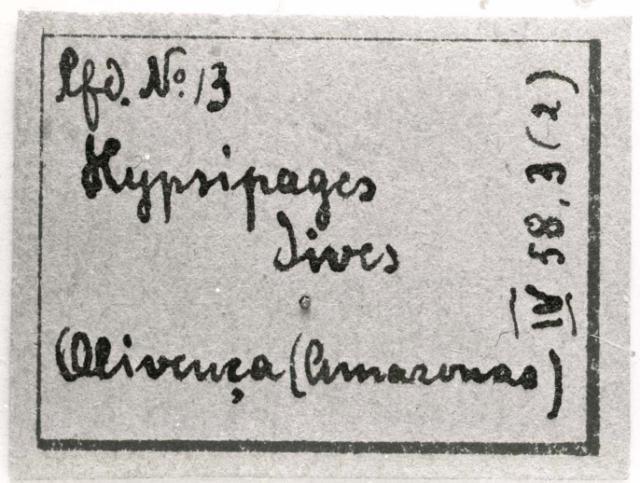 Lfd. No. 13
Hypsipages
dives
Olivença (Amazonas)
IV 58, 3 (2)